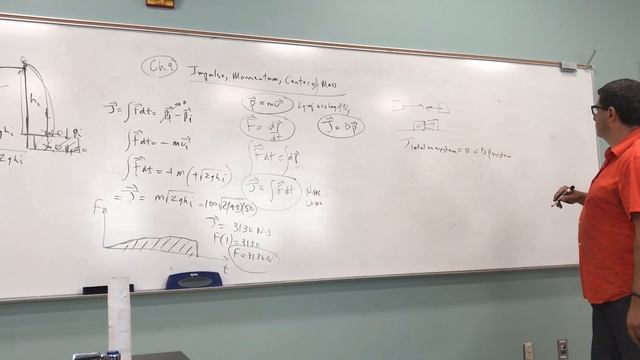 Ch 9
Impulse, Momentum, Center of Mass
hi
J = ∫Fdt = Pf - Pi
∫Fdt = -mvi
∫Fdt = -m(-√2ghi)
= J = m√2ghi
J = 3130 N·s
F(1) = 3130
F = 3130 N
F
t
p = mv
F = dp/dt
J = Dp
∫Fdt = ∫dp
J = ∫Fdt
J total on system = 0 = D